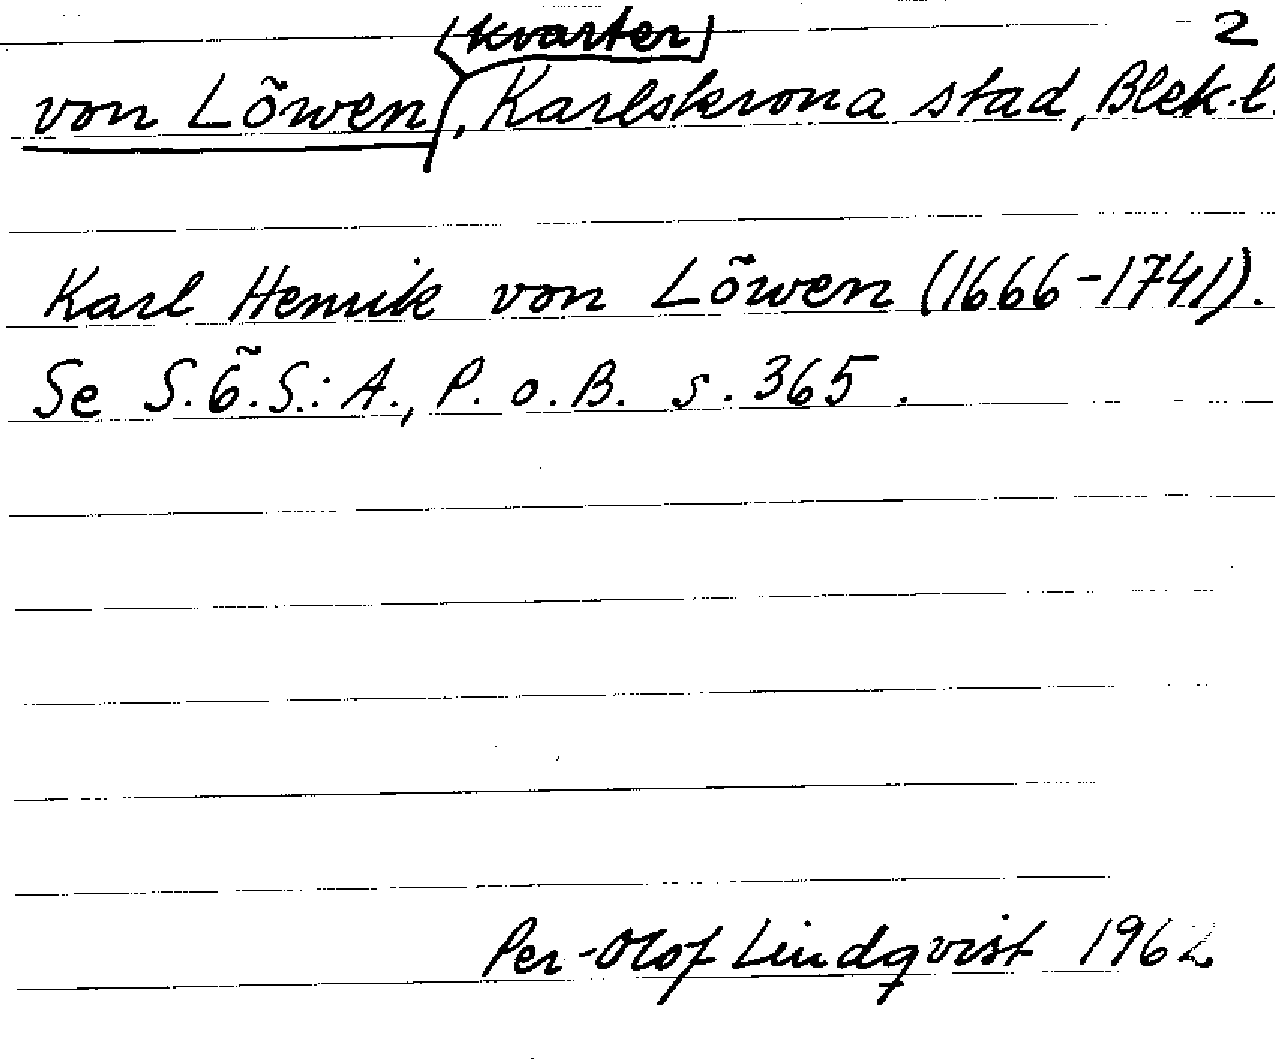 (kvarter) 2
von Löwen, Karlskrona stad, Blek. l.
Karl Henrik von Löwen (1666-1741).
Se S.Ö.S.: A., P. o. B. s. 365.
Per-Olof Lindqvist 1962